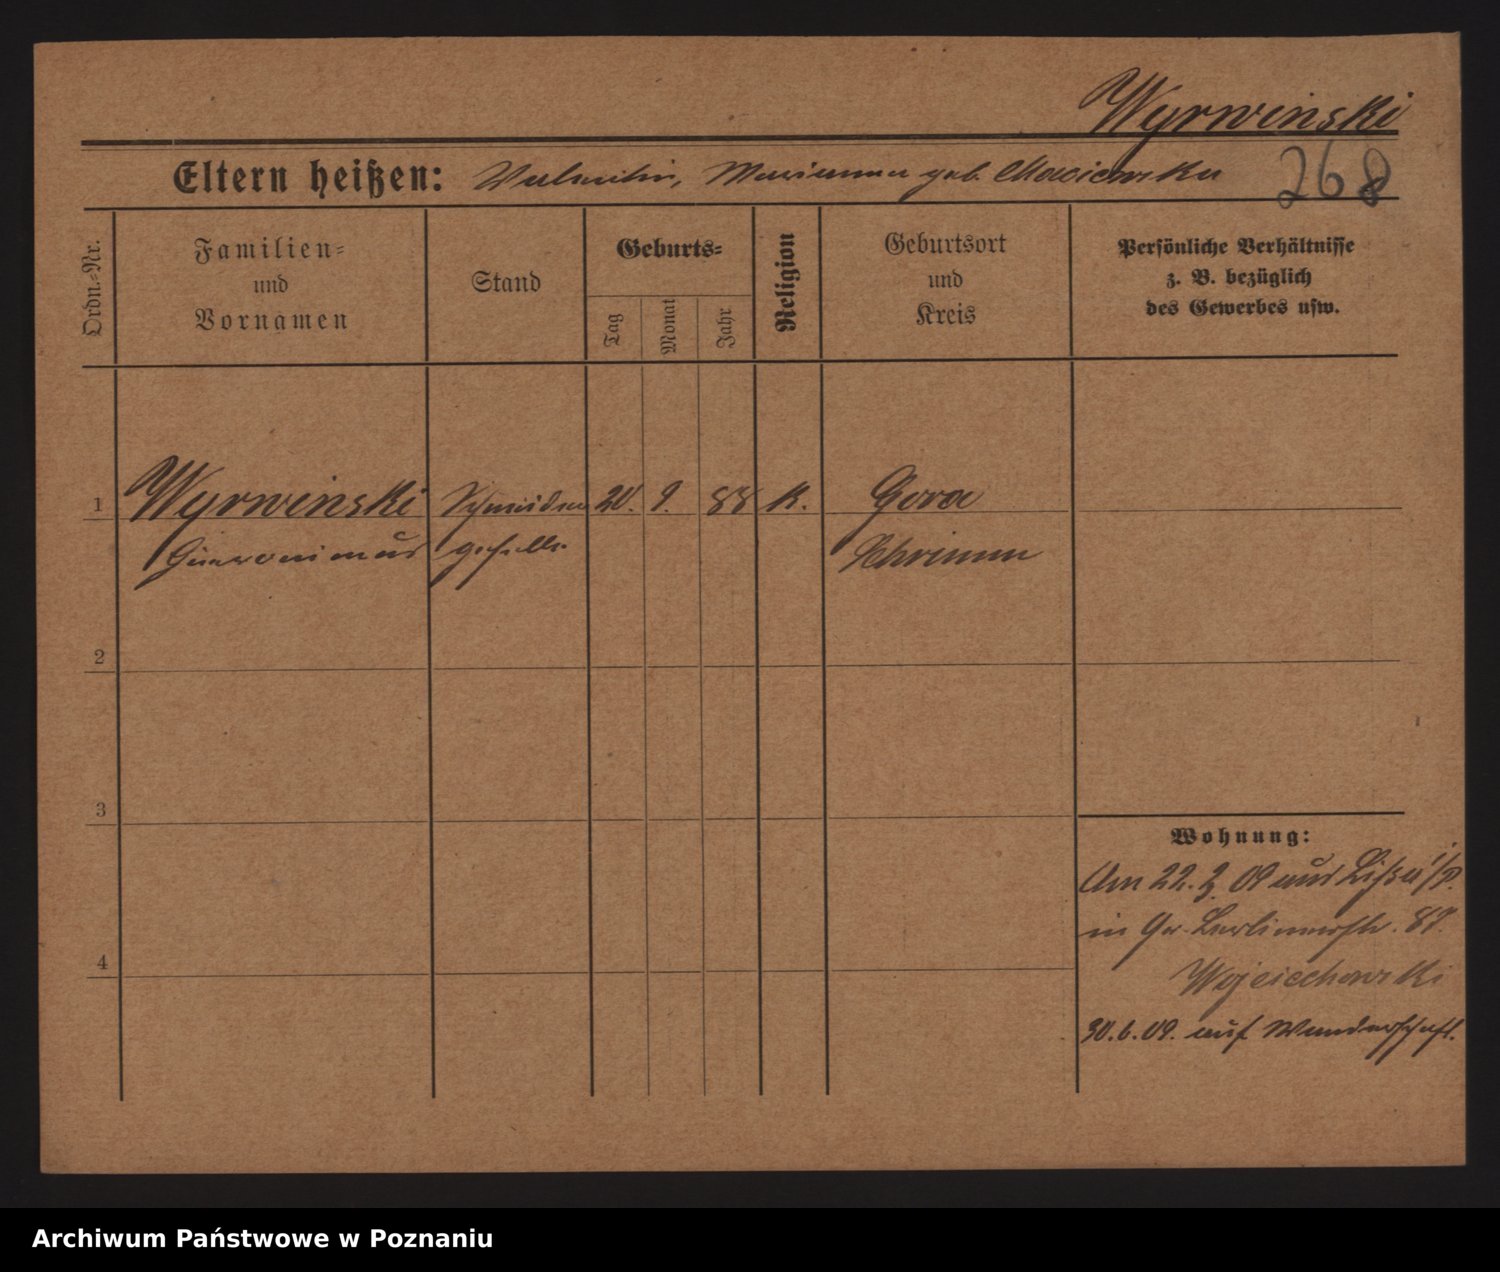 Wyrwinski
Eltern heißen: Valentin, Marianna geb. Maciewska
268
Ordn.-Nr.
Familien-
und
Vornamen
Stand
Geburts-
Tag
Monat
Jahr
Religion
Geburtsort
und
Kreis
Persönliche Verhältnisse
z. B. bezüglich
des Gewerbes usw.
1 Wyrwinski Schneider 20. 9. 88 K. Gora
geselle Schrimm
2
3
4
Wohnung:
Am 22. 09 aus Lissa i/P.
in Gr. Berlinerstr. 87.
Wojciechowski
30.6.09. auf Wanderschaft.
Archiwum Państwowe w Poznaniu